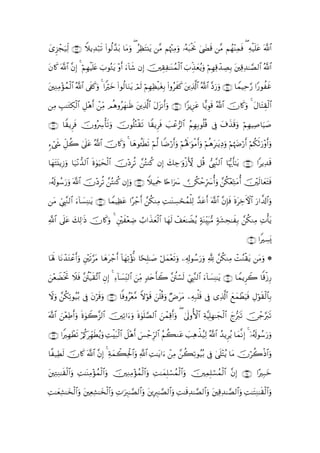 ٱللَّهَ عَلَيۡهِۖ فَمِنۡهُم مَّن قَضَىٰ نَحۡبَهُۥ وَمِنۡهُم مَّن يَنتَظِرُۖ وَمَا بَدَّلُواْ تَبۡدِيلٗا ٢٣ لِّيَجۡزِيَ
ٱللَّهُ ٱلصَّٰدِقِينَ بِصِدۡقِهِمۡ وَيُعَذِّبَ ٱلۡمُنَٰفِقِينَ إِن شَآءَ أَوۡ يَتُوبَ عَلَيۡهِمۡۚ إِنَّ ٱللَّهَ كَانَ
غَفُورٗا رَّحِيمٗا ٢٤ وَرَدَّ ٱللَّهُ ٱلَّذِينَ كَفَرُواْ بِغَيۡظِهِمۡ لَمۡ يَنَالُواْ خَيۡرٗاۚ وَكَفَى ٱللَّهُ ٱلۡمُؤۡمِنِينَ
ٱلۡقِتَالَۚ وَكَانَ ٱللَّهُ قَوِيًّا عَزِيزٗا ٢٥ وَأَنزَلَ ٱلَّذِينَ ظَٰهَرُوهُم مِّنۡ أَهۡلِ ٱلۡكِتَٰبِ مِن
صَيَاصِيهِمۡ وَقَذَفَ فِي قُلُوبِهِمُ ٱلرُّعۡبَ فَرِيقٗا تَقۡتُلُونَ وَتَأۡسِرُونَ فَرِيقٗا ٢٦
وَأَوۡرَثَكُمۡ أَرۡضَهُمۡ وَدِيَٰرَهُمۡ وَأَمۡوَٰلَهُمۡ وَأَرۡضٗا لَّمۡ تَطَـُٔوهَاۚ وَكَانَ ٱللَّهُ عَلَىٰ كُلِّ شَيۡءٖ
قَدِيرٗا ٢٧ يَٰٓأَيُّهَا ٱلنَّبِيُّ قُل لِّأَزۡوَٰجِكَ إِن كُنتُنَّ تُرِدۡنَ ٱلۡحَيَوٰةَ ٱلدُّنۡيَا وَزِينَتَهَا
فَتَعَالَيۡنَ أُمَتِّعۡكُنَّ وَأُسَرِّحۡكُنَّ سَرَاحٗا جَمِيلٗا ٢٨ وَإِن كُنتُنَّ تُرِدۡنَ ٱللَّهَ وَرَسُولَهُۥ
وَٱلدَّارَ ٱلۡأٓخِرَةَ فَإِنَّ ٱللَّهَ أَعَدَّ لِلۡمُحۡسِنَٰتِ مِنكُنَّ أَجۡرًا عَظِيمٗا ٢٩ يَٰنِسَآءَ ٱلنَّبِيِّ مَن
يَأۡتِ مِنكُنَّ بِفَٰحِشَةٖ مُّبَيِّنَةٖ يُضَٰعَفۡ لَهَا ٱلۡعَذَابُ ضِعۡفَيۡنِۚ وَكَانَ ذَٰلِكَ عَلَى ٱللَّهِ
يَسِيرٗا ٣٠
۞ وَمَن يَقۡنُتۡ مِنكُنَّ لِلَّهِ وَرَسُولِهِۦ وَتَعۡمَلۡ صَٰلِحٗا نُّؤۡتِهَآ أَجۡرَهَا مَرَّتَيۡنِ وَأَعۡتَدۡنَا لَهَا
رِزۡقٗا كَرِيمٗا ٣١ يَٰنِسَآءَ ٱلنَّبِيِّ لَسۡتُنَّ كَأَحَدٖ مِّنَ ٱلنِّسَآءِ إِنِ ٱتَّقَيۡتُنَّۚ فَلَا تَخۡضَعۡنَ
بِٱلۡقَوۡلِ فَيَطۡمَعَ ٱلَّذِي فِي قَلۡبِهِۦ مَرَضٞ وَقُلۡنَ قَوۡلٗا مَّعۡرُوفٗا ٣٢ وَقَرۡنَ فِي بُيُوتِكُنَّ وَلَا
تَبَرَّجۡنَ تَبَرُّجَ ٱلۡجَٰهِلِيَّةِ ٱلۡأُولَىٰۖ وَأَقِمۡنَ ٱلصَّلَوٰةَ وَءَاتِينَ ٱلزَّكَوٰةَ وَأَطِعۡنَ ٱللَّهَ
وَرَسُولَهُۥٓۚ إِنَّمَا يُرِيدُ ٱللَّهُ لِيُذۡهِبَ عَنكُمُ ٱلرِّجۡسَ أَهۡلَ ٱلۡبَيۡتِ وَيُطَهِّرَكُمۡ تَطۡهِيرٗا ٣٣
وَٱذۡكُرۡنَ مَا يُتۡلَىٰ فِي بُيُوتِكُنَّ مِنۡ ءَايَٰتِ ٱللَّهِ وَٱلۡحِكۡمَةِۚ إِنَّ ٱللَّهَ كَانَ لَطِيفًا
خَبِيرًا ٣٤ إِنَّ ٱلۡمُسۡلِمِينَ وَٱلۡمُسۡلِمَٰتِ وَٱلۡمُؤۡمِنِينَ وَٱلۡمُؤۡمِنَٰتِ وَٱلۡقَٰنِتِينَ
وَٱلۡقَٰنِتَٰتِ وَٱلصَّٰدِقِينَ وَٱلصَّٰدِقَٰتِ وَٱلصَّٰبِرِينَ وَٱلصَّٰبِرَٰتِ وَٱلۡخَٰشِعِينَ وَٱلۡخَٰشِعَٰتِ